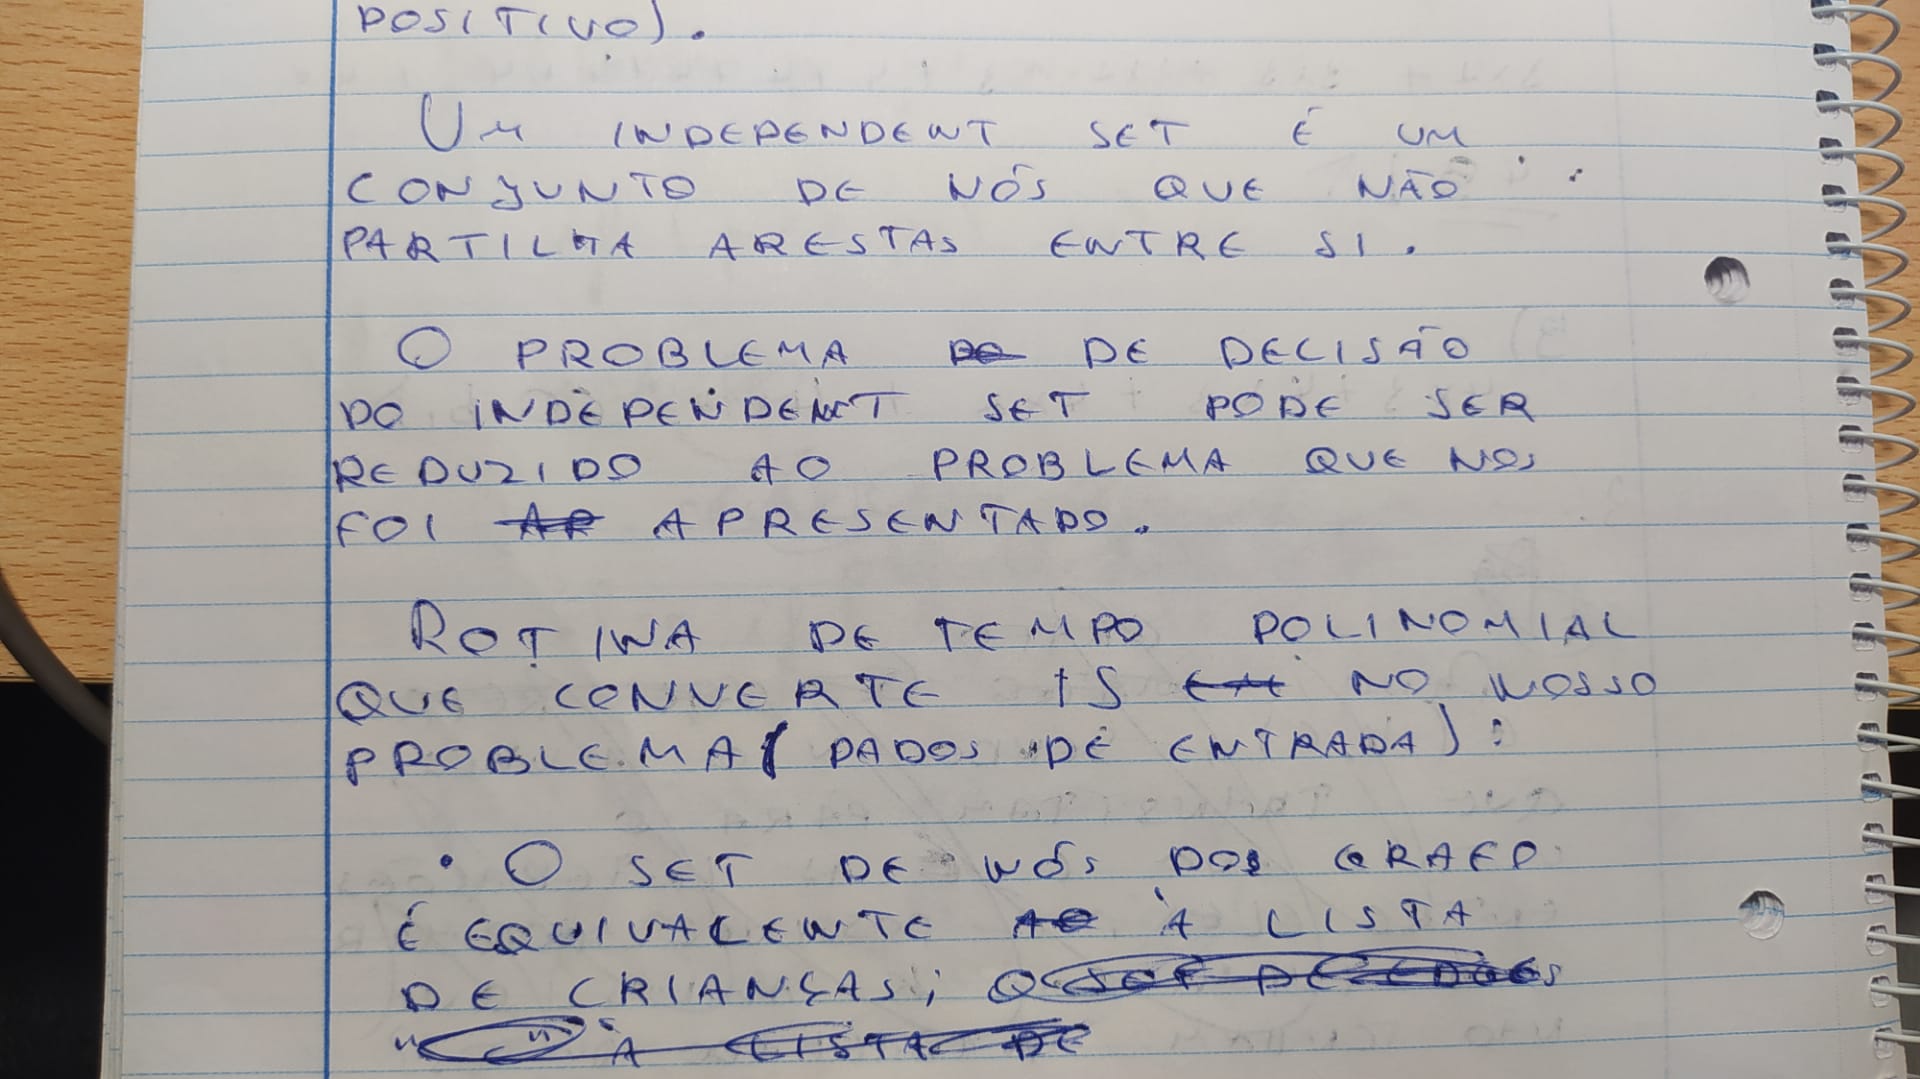 POSITIVO).
UM INDEPENDENT SET É UM
CONJUNTO DE NÓS QUE NÃO
PARTILHA ARESTAS ENTRE SI.
O PROBLEMA DE DECISÃO
DO INDEPENDENT SET PODE SER
REDUZIDO AO PROBLEMA QUE NOS
FOI APRESENTADO.
ROTINA DE TEMPO POLINOMIAL
QUE CONVERTE IS NO NOSSO
PROBLEMA (DADOS DE ENTRADA):
• O SET DE NÓS DO GRAFO
É EQUIVALENTE À LISTA
DE CRIANÇAS;